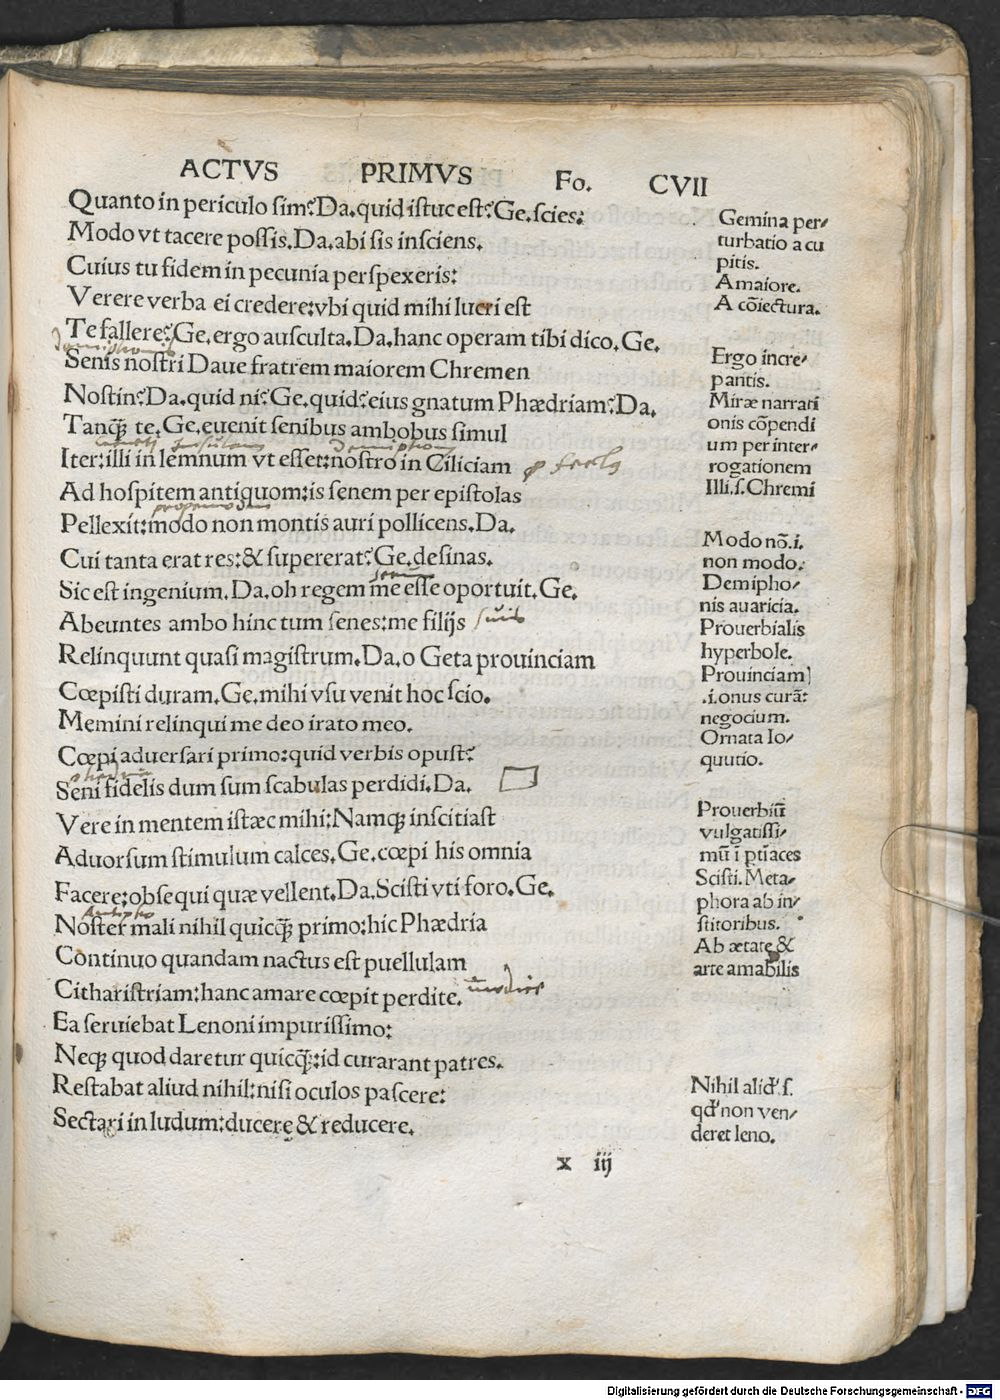 ACTVS PRIMVS Fo. CVII
Quanto in periculo sim? Da. quid istuc est? Ge. scies:
Modo vt tacere possis. Da. abi sis insciens.
Cuius tu fidem in pecunia perspexeris:
Verere verba ei credere: vbi quid mihi lucri est
Te fallere? Ge. ergo ausculta. Da. hanc operam tibi dico. Ge.
Demiphonis
Senis nostri Daue fratrem maiorem Chremen
Nostin? Da. quid ni? Ge. quid? eius gnatum Phædriam? Da.
Tanqꝫ te. Ge. euenit senibus ambobus simul
Iter: illi in lemnum vt esset: nostro in Ciliciam
Ad hospitem antiquom: is senem per epistolas
Pellexit: modo non montis auri pollicens. Da.
Cui tanta erat res: & supererat? Ge. desinas.
Sic est ingenium. Da. oh regem me esse oportuit. Ge.
Abeuntes ambo hinc tum senes: me filijs suis
Relinquunt quasi magistrum. Da. o Geta prouinciam
Cœpisti duram. Ge. mihi vsu venit hoc scio.
Memini relinqui me deo irato meo.
Cœpi aduersari primo: quid verbis opust?
Seni fidelis dum sum scabulas perdidi. Da.
Vere in mentem istæc mihi: Namqꝫ inscitiast
Aduorsum stimulum calces. Ge. cœpi his omnia
Facere: obsequi quæ vellent. Da. Scisti vti foro. Ge.
Antipho
Noster mali nihil quicqꝫ primo: hic Phædria
Continuo quandam nactus est puellulam
Citharistriam: hanc amare cœpit perdite.
Ea seruiebat Lenoni impurissimo:
Neqꝫ quod daretur quicqꝫ: id curarant patres.
Restabat aliud nihil: nisi oculos pascere:
Sectari in ludum: ducere & reducere.
x iij
Gemina per-
turbatio a cu
pitis.
A maiore.
A cõiectura.
Ergo incre-
pantis.
Miræ narrati
onis cõpendi
um per inter-
rogationem
Illi .s. Chremi
Modo nõ .i.
non modo.
Demipho-
nis auaricia.
Prouerbialis
hyperbole.
Prouinciam)
.i. onus curã:
negocium.
Ornata lo-
quutio.
Prouerbiũ
vulgatissi-
mũ ĩ ptĩaces
Scisti. Meta-
phora ab in-
stitoribus.
Ab ætate &
arte amabilis
Nihil alid' s.
qd' non ven-
deret leno.
Digitalisierung gefördert durch die Deutsche Forschungsgemeinschaft - DFG